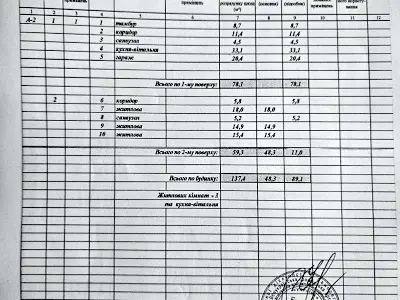 приміщень приміщень розрахунку площі (м²) (основна) (підсобна) приміщень його користування
1 2 3 4 5 6 7 8 9 10 11 12
А-2 1 1 1 тамбур 8,7 8,7
2 коридор 11,4 11,4
3 санвузол 4,5 4,5
4 кухня-вітальня 33,1 33,1
5 гараж 20,4 20,4
Всього по 1-му поверху: 78,1 78,1
2 6 коридор 5,8 5,8
7 житлова 18,0 18,0
8 санвузол 5,2 5,2
9 житлова 14,9 14,9
10 житлова 15,4 15,4
Всього по 2-му поверху: 59,3 48,3 11,0
Всього по будинку: 137,4 48,3 89,1
Житлових кімнат - 3
та кухня-вітальня